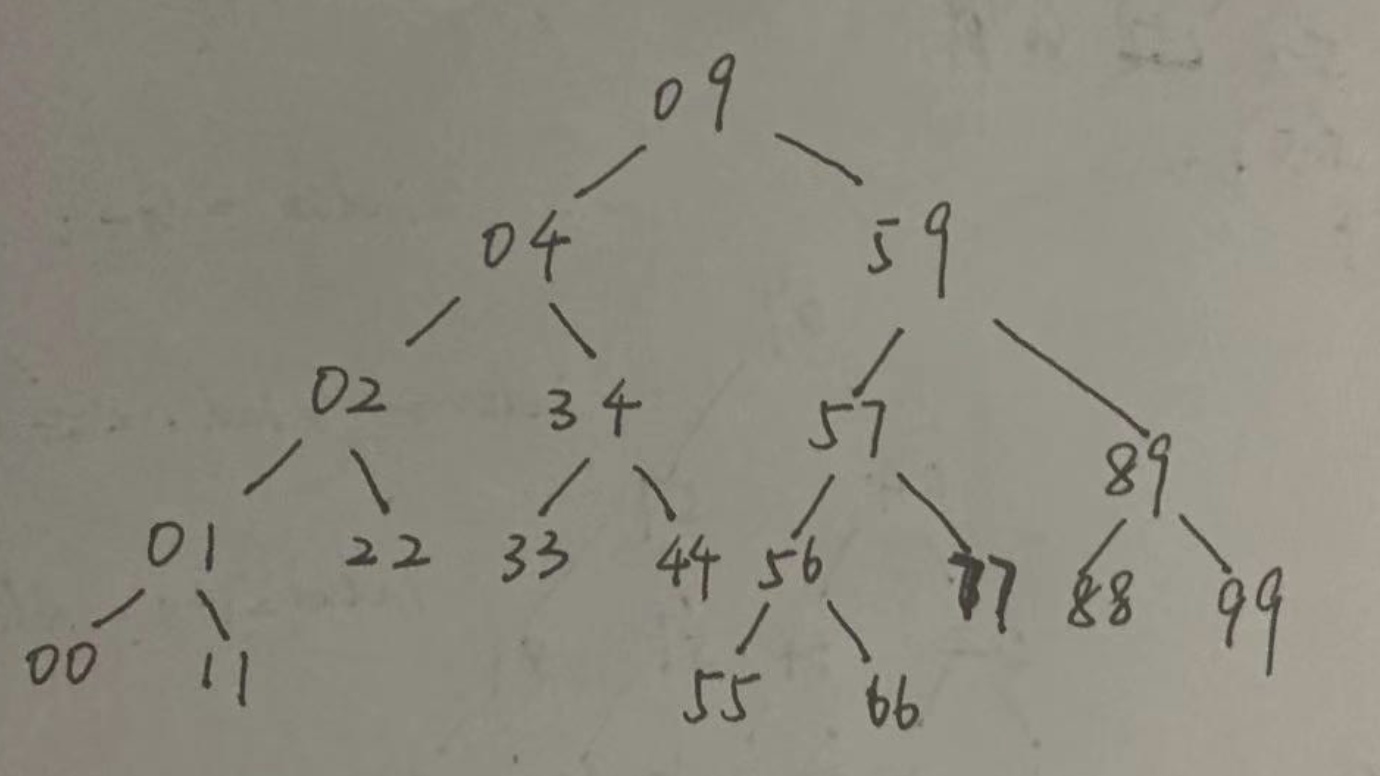 09
04 59
02 34 57 89
01 22 33 44 56 77 88 99
00 11 55 66